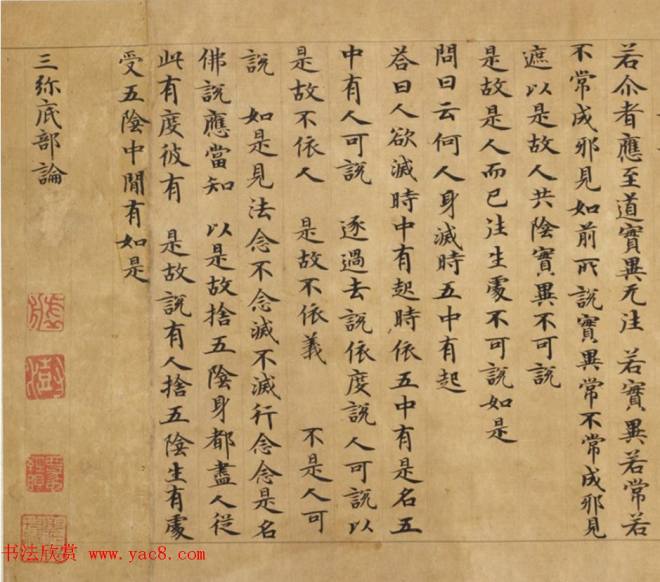 若尒者應至道實異无注　若實異若常若
不常成邪見如前所說實異常不常成邪見
遮以是故人共陰實異不可說
是故是人而已注生處不可說如是
問曰云何人身滅時五中有起
荅曰人欲滅時中有起時依五中有是名五
中有人可說　逐過去說依度說人可說以
是故不依人　是故不依義　　不是人可
說　如是見法念不念滅不滅行念念是名
佛說應當知　以是故捨五陰身都盡人從
此有度彼有　是故說有人捨五陰生有處
受五陰中閒有如是
三弥底部論
书法欣赏 www.yac8.com